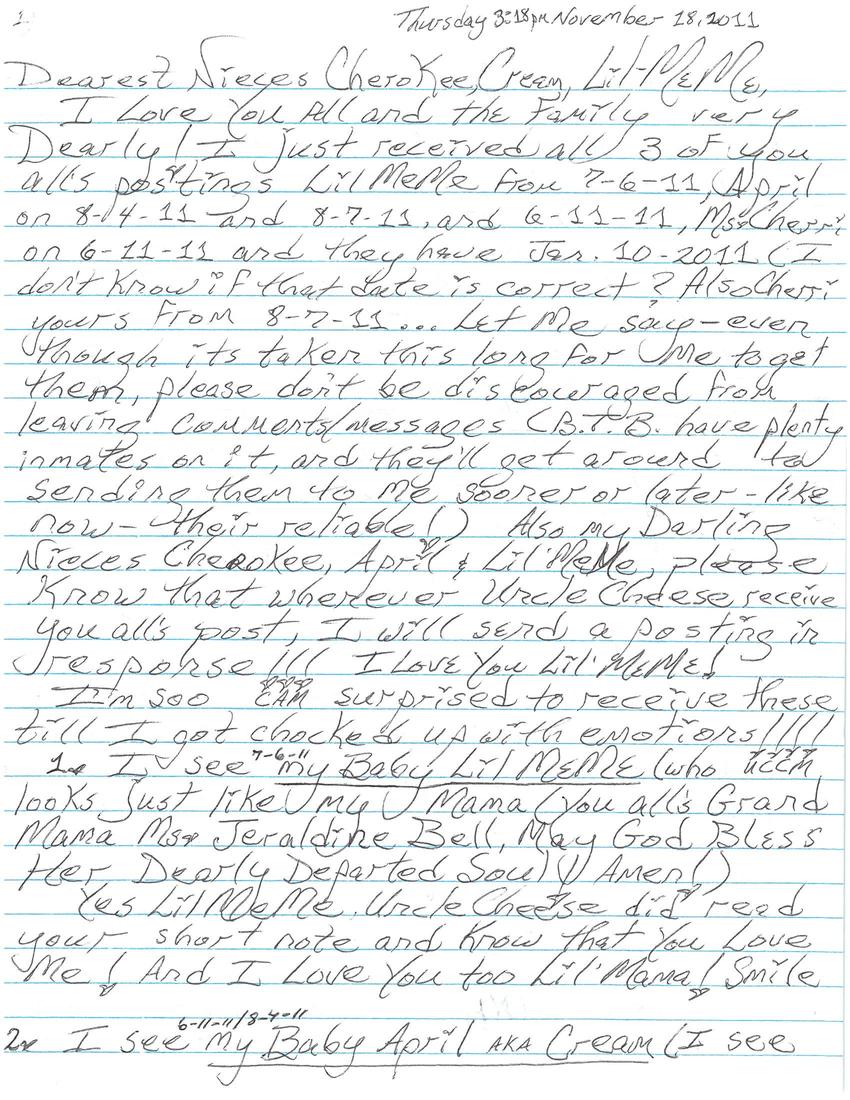 1.
Thursday 3:18pm November 18, 2011
Dearest Nieces Cherokee, Cream, Lil-MeMe,
I Love You All and the Family very
Dearly! I just received all 3 of you
all's postings Lil MeMe from 7-6-11, April
on 8-4-11 and 8-7-11, and 6-11-11, Ms. Cherri
on 6-11-11 and they have Jan. 10-2011 (I
don't know if that date is correct? Also Cherri
yours from 8-7-11... Let Me say-even
though its taken this long for Me to get
them, please don't be discouraged from
leaving comments/messages (B.T.B. have plenty
inmates on it, and they'll get around to
sending them to me sooner or later-like
now-their reliable!) Also my Darling
Nieces Cherokee, April & Lil' MeMe, please
Know that whenever Uncle Cheese receive
you all's post, I will send a posting in
response!!!! I Love You Lil' MeMe!
I'm soo surprised to receive these
till I got chocked up with emotions!!!!!
1. I see 7-6-11 my Baby Lil MeMe (who
looks just like my Mama (you all's Grand
Mama Ms. Jeraldine Bell, May God Bless
Her Dearly Departed Soul)! Amen!)
Yes Lil MeMe, Uncle Cheese did read
your short note and know that You Love
Me! And I Love You too Lil' Mama! Smile
6-11-11/8-4-11
2. I see my Baby April AKA Cream (I see